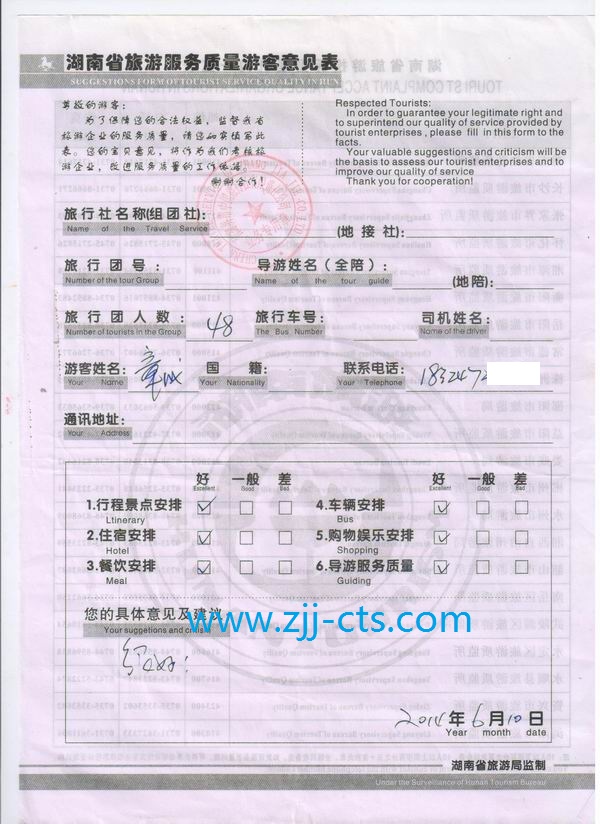 湖南省旅游服务质量游客意见表
SUGGESTIONS FORM OF TOURIST SERVICE QUALITY IN HUN
尊敬的游客:
为了保障您的合法权益,监督我省
旅游企业的服务质量,请您如实填写此
表。您的宝贵意见,将作为我们考核旅
游企业,改进服务质量的工作依据。
谢谢合作!
Respected Tourists:
In order to guarantee your legitimate right and
to superintend our quality of service provided by
tourist enterprises , please fill in this form to the
facts.
Your valuable suggestions and criticism will be
the basis to assess our tourist enterprises and to
improve our quality of service
Thank you for cooperation!
旅行社名称(组团社): (地接社):
Name of the Travel Service
旅行团号: 导游姓名(全陪) (地陪):
Number of the tour Group Name of the tour guide
旅行团人数: 48 旅行车号: 司机姓名:
Number of tourists in the Group The Bus Number Name of the driver
游客姓名: 国籍: 联系电话: 1832472
Your Name Your Nationality Your Telephone
通讯地址:
Your Address
好 一般 差 好 一般 差
Excellent Good Bad Excellent Good Bad
1.行程景点安排 4.车辆安排
Ltinerary Bus
2.住宿安排 5.购物娱乐安排
Hotel Shopping
3.餐饮安排 6.导游服务质量
Meal Guiding
您的具体意见及建议
Your suggetions and critici
www.zjj-cts.com
2014年6月10日
Year month date
湖南省旅游局监制
Under the Surveillance of Hunan Tourism Bureau